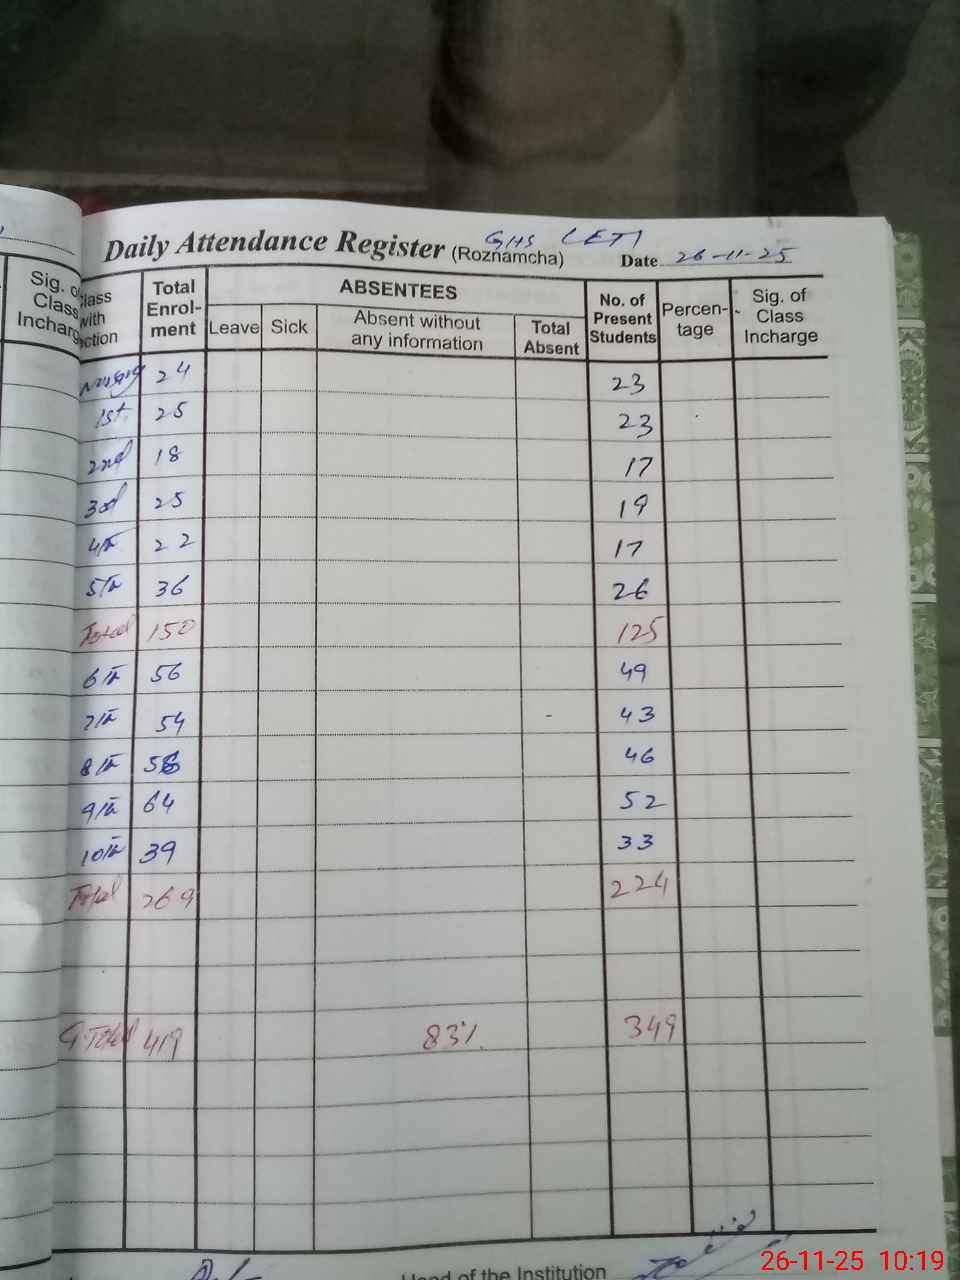 GHS LETI
Daily Attendance Register (Roznamcha) Date 26-11-25
Sig. of Class Incharg
Class with Section Total Enrol-ment ABSENTEES No. of Present Students Percen-tage Sig. of Class Incharge
Leave Sick Absent without any information Total Absent
24 23
1st 25 23
2nd 18 17
3rd 25 19
4th 22 17
5th 36 26
Total 150 125
6th 56 49
7th 54 43
8th 56 46
9th 64 52
10th 39 33
Total 269 224
G.Total 419 83% 349
Head of the Institution
26-11-25 10:19